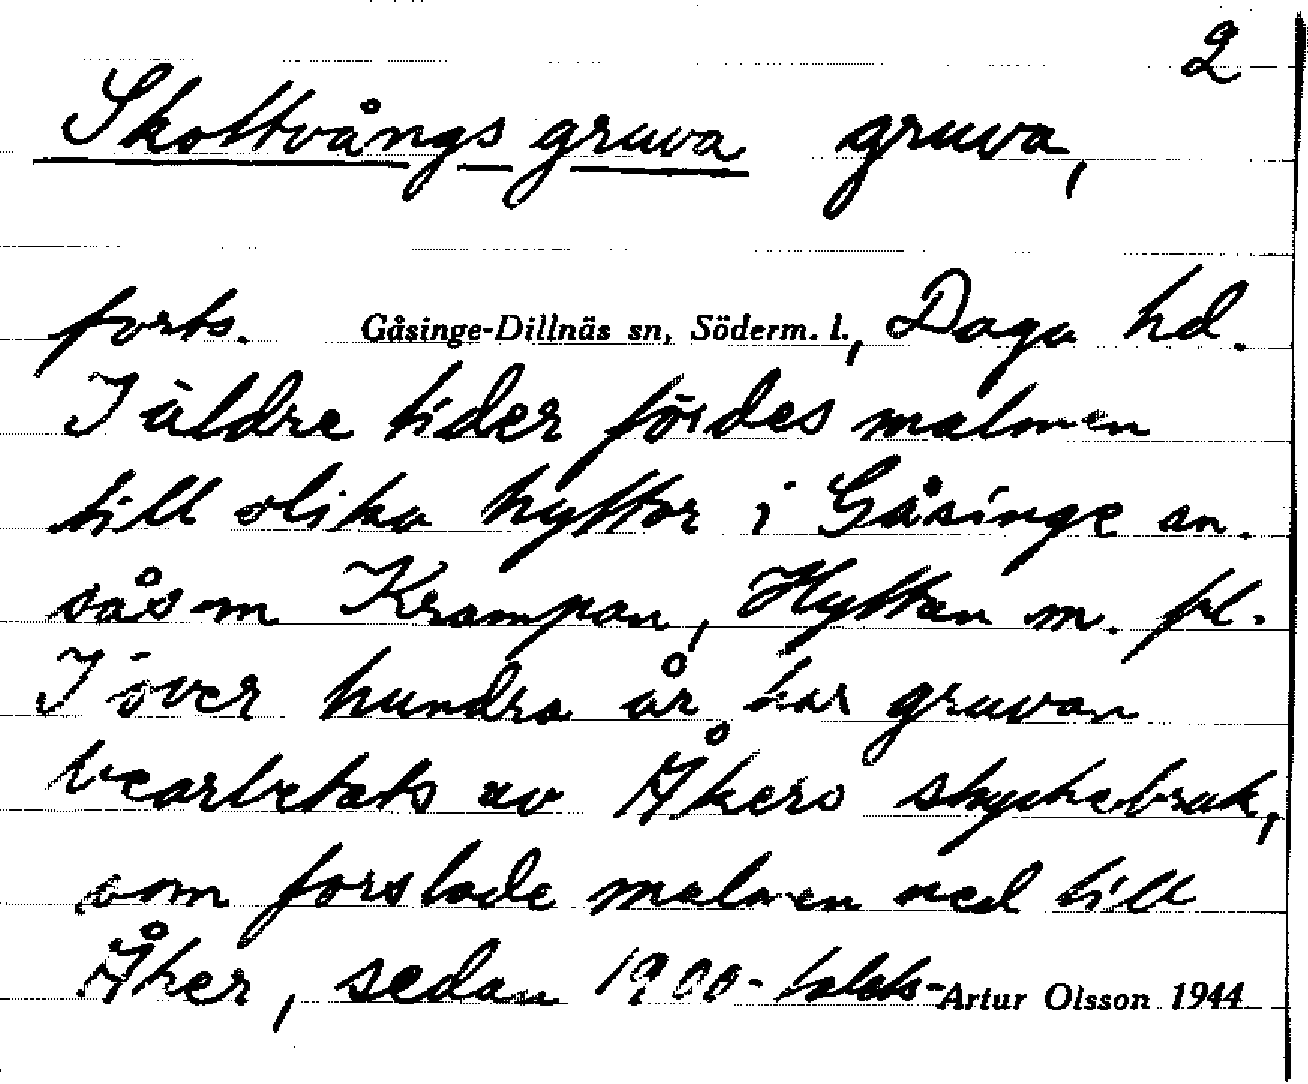 2
Skottvångs gruva gruva,
forts. Gåsinge-Dillnäs sn, Söderm. l., Daga hd.
I äldre tider fördes malmen
till olika hyttor i Gåsinge sn.
såsom Krampan, Hyttan m. fl.
I över hundra år har gruvan
bearbetats av Åkers styckebruk,
som forslade malmen ned till
Åker, sedan 1900-talets-
Artur Olsson 1944